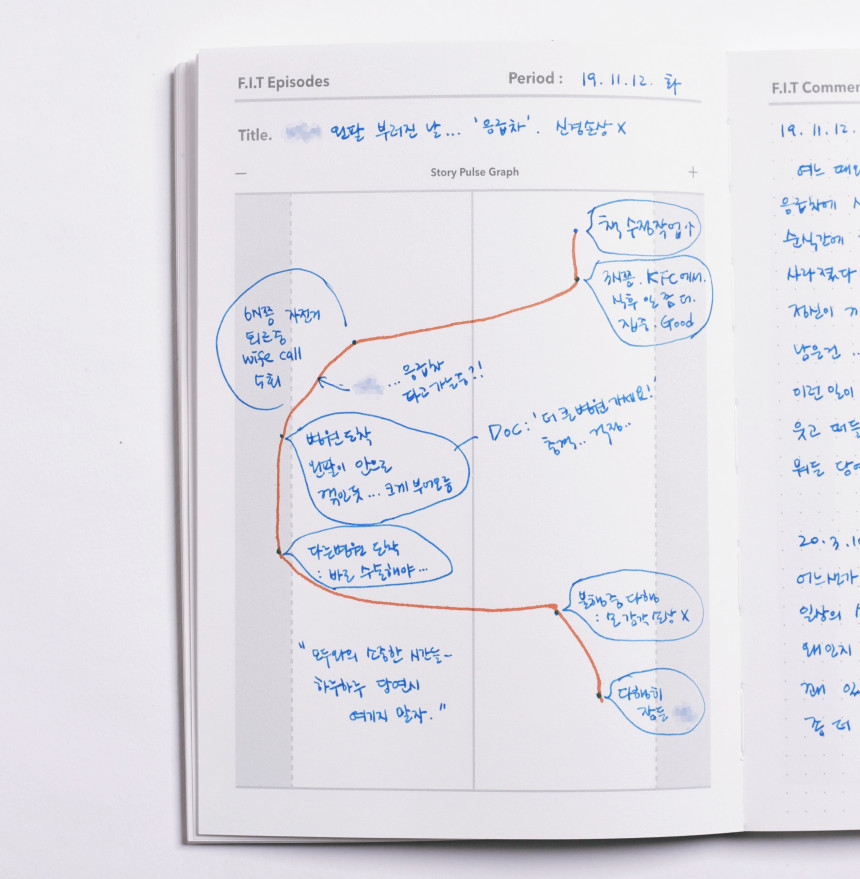 F.I.T Episodes
Period : 19. 11. 12. 화
Title. 왼팔 부러진 날... '응급차'. 신경손상 X
− Story Pulse Graph +
책 수정작업 中
3시쯤. KFC에서.
식후 일 좀 더.
집중. Good
6시쯤 자전거
퇴근중
wife call
수회
... 응급차
타고 가는중?!
병원 도착
왼팔이 안으로
꺾인듯... 크게 부어오름
Doc: '더 큰병원 가세요!'
충격.. 걱정..
다른병원 도착
: 바로 수술해야...
불행중 다행
: 손 감각 손상 X
다행히
잠듦
"모두와의 소중한 시간들~
하루하루 당연시
여기지 말자."
F.I.T Commen
19. 11. 12.
여느 때와
응급차에
순식간에
사라졌다
정신이
남은건 ...
이런 일이
웃고 떠들
뭐든 당연
20. 3. 1
어느샌가
일상의
왜인지
꽤
좀 더